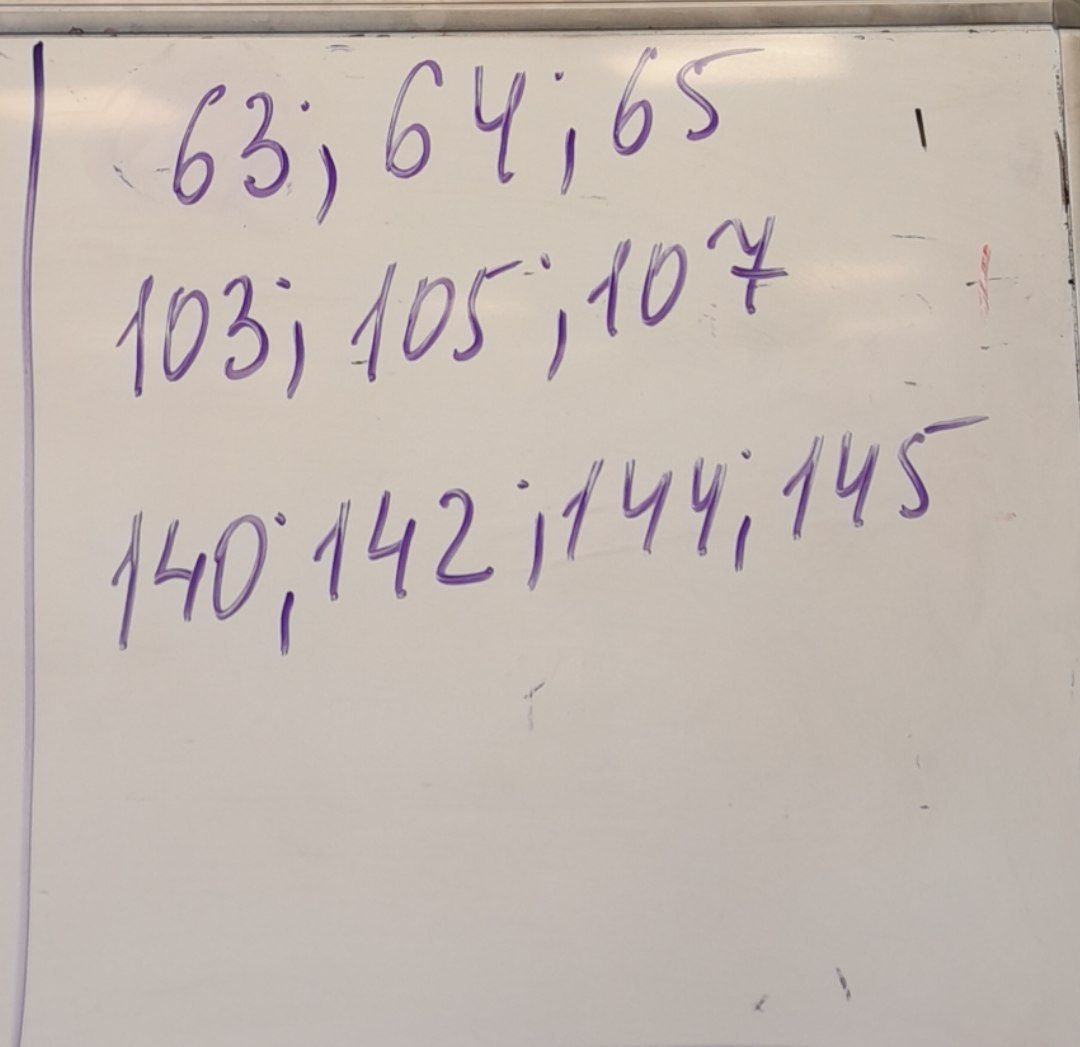 63; 64; 65
103; 105; 107
140; 142; 144; 145